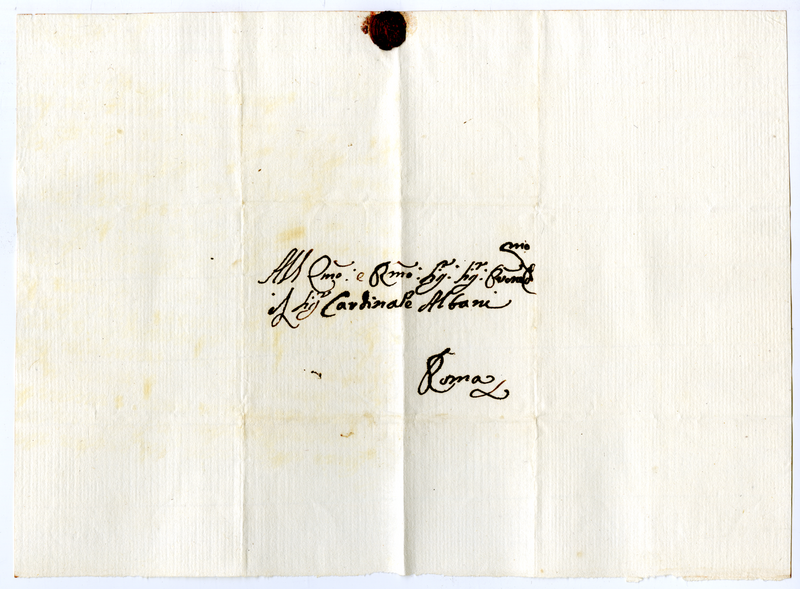 All Emo: e Rmo: Sig.r Sig.r
il Sig.r Cardinale Albani
Roma